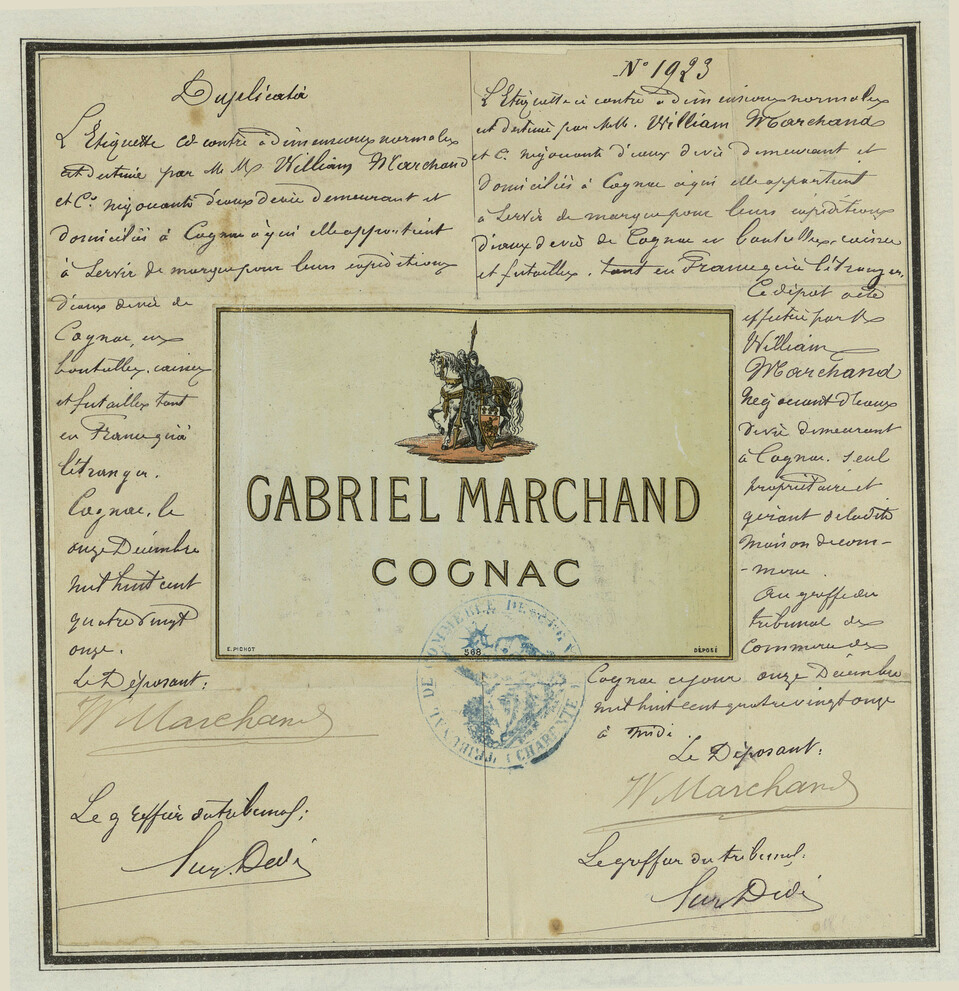 Duplicata
L'Etiquette ci contre a dimensions normales
est destinée par M M William Marchand
et Cie négociants d'eaux de vie demeurant et
domiciliés à Cognac à qui elle appartient
à servir de marque pour leurs expéditions
d'eaux de vie de
Cognac, en
bouteilles, caisses
et futailles tant
en France qu'à
l'étranger.
Cognac, le
onze Décembre
mil huit cent
quatre vingt
onze.
Le Déposant:
W Marchand
Le greffier du tribunal;
N° 1923
L'Etiquette ci contre a dimensions normales
est destinée par M.M. William Marchand
et C. négociants d'eaux de vie demeurant et
domiciliés à Cognac à qui elle appartient
à servir de marque pour leurs expéditions
d'eaux de vie de Cognac en bouteilles, caisses
et futailles, tant en France qu'à l'étranger.
Ce dépôt a été
effectué par M
William
Marchand
Négociant d'eaux
de vie demeurant
à Cognac. seul
propriétaire et
gérant de la dite
maison de com-
-merce.
Au greffe du
tribunal de
Commerce de
Cognac ce jour onze Décembre
mil huit cent quatre vingt onze
à midi.
Le Déposant:
W Marchand
Le greffier du tribunal.
GABRIEL MARCHAND
COGNAC
E. PICHOT
568
DÉPOSÉ
TRIBUNAL DE COMMERCE DE COGNAC
CHARENTE